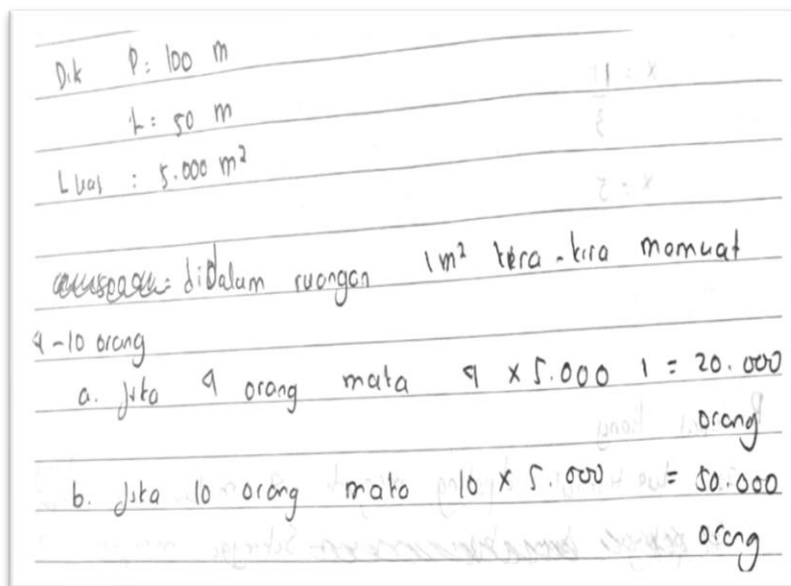 Dik P: 100 m
L: 50 m
Luas : 5.000 m²
didalam ruangan 1m² kira-kira memuat
4-10 orang
a. Jika 4 orang maka 4 x 5.000 1 = 20.000
orang
b. Jika 10 orang maka 10 x 5.000 = 50.000
orang